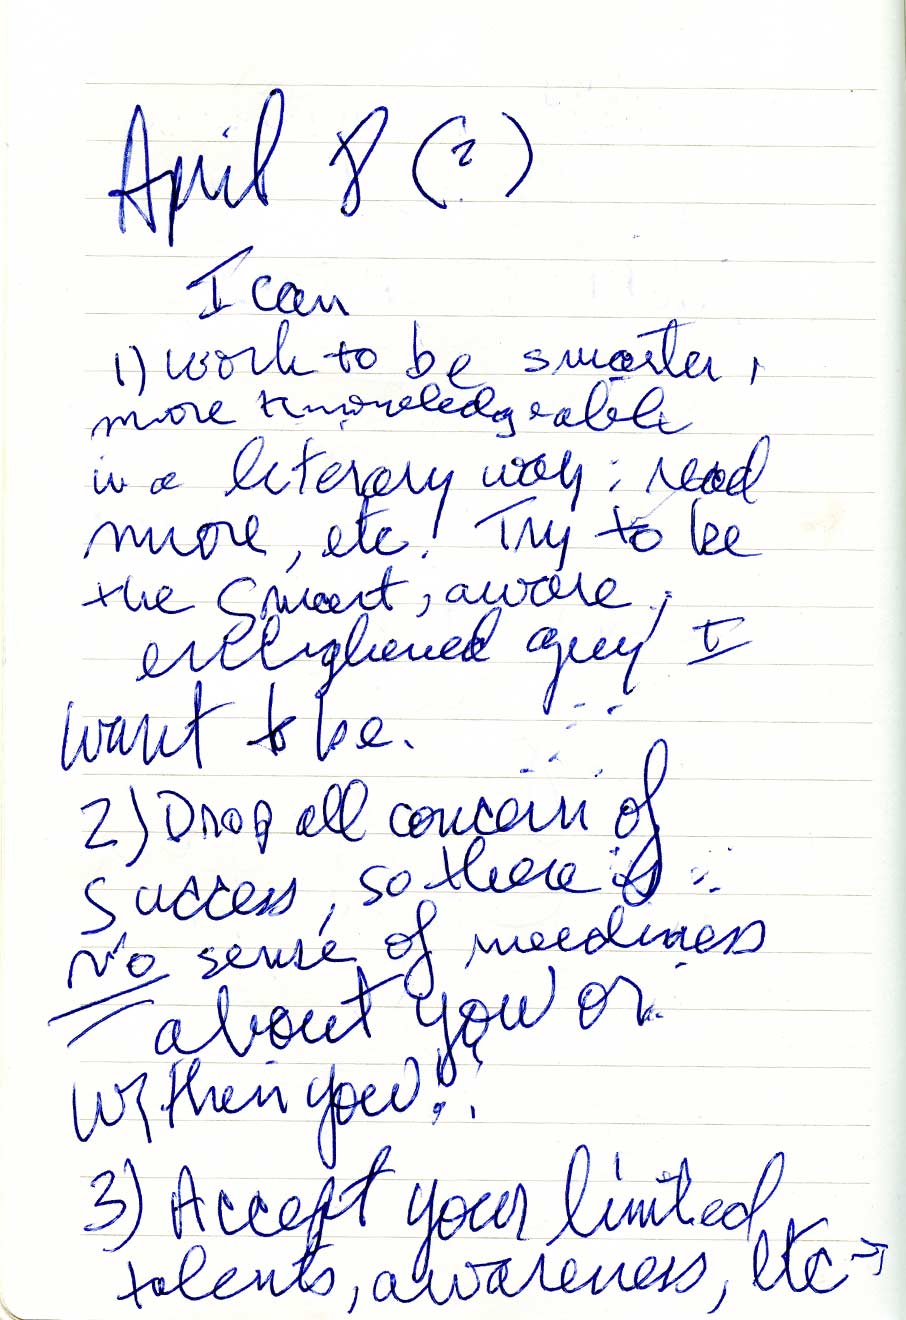 April 8 (?)
I can
1) work to be smarter,
more knowledgeable
in a literary way: read
more, etc! Try to be
the smart, aware,
enlightened guy I
want to be.
2) Drop all concern of
success, so there is
No sense of neediness
about you or
w/then you!!
3) Accept your limited
talents, awareness, etc →